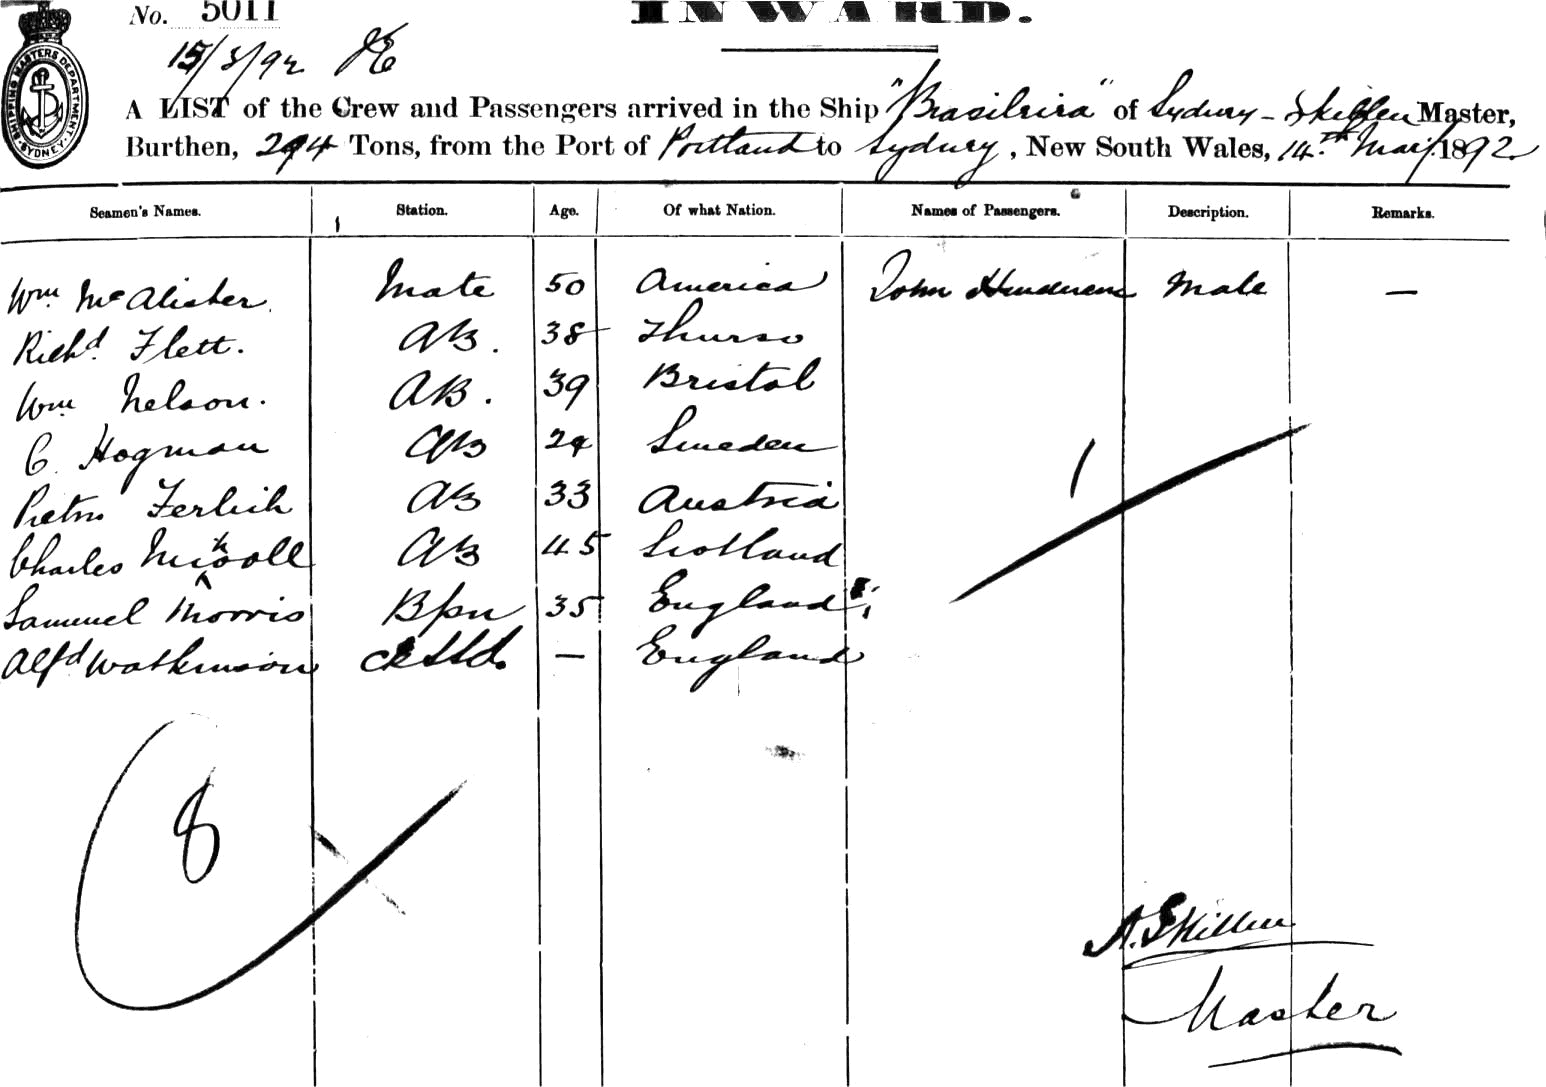 No. 5011
INWARD.
15/3/92 JE
SHIPPING MASTERS DEPARTMENT SYDNEY
A LIST of the Crew and Passengers arrived in the Ship "Brasileira" of Sydney - Skillen Master,
Burthen, 294 Tons, from the Port of Portland to Sydney, New South Wales, 14th Mar/ 1892
Seamen's Names. Station. Age. Of what Nation. Names of Passengers. Description. Remarks.
Wm McAlister. Mate 50 America John Male —
Richd Flett. AB. 38 Thurso
Wm Nelson. AB. 39 Bristol
C. Hogman AB 24 Sweden
Pietro Ferlich AB 33 Austria
Charles AB 45 Scotland
Samuel Morris Bpn 35 England
Alfd Watkinson England
1
8
A. Skillen
Master